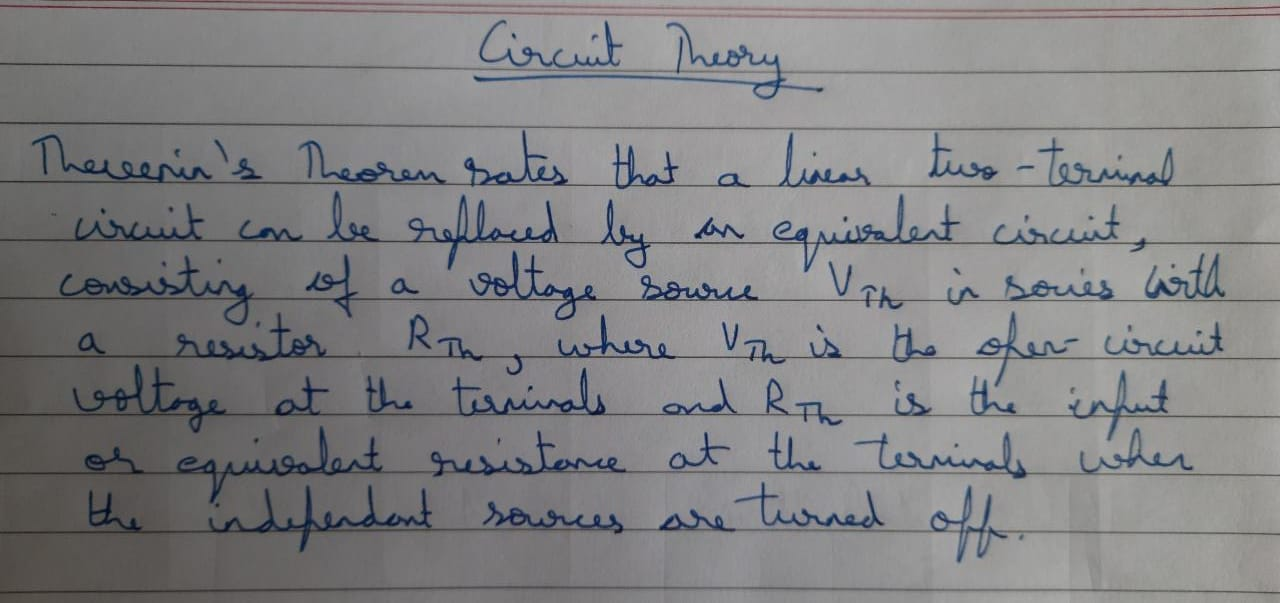 Circuit Theory
Thevenin's Theorem states that a linear two-terminal
circuit can be replaced by an equivalent circuit,
consisting of a voltage source V_Th in series with
a resistor R_Th, where V_Th is the open-circuit
voltage at the terminals and R_Th is the input
or equivalent resistance at the terminals when
the independent sources are turned off.